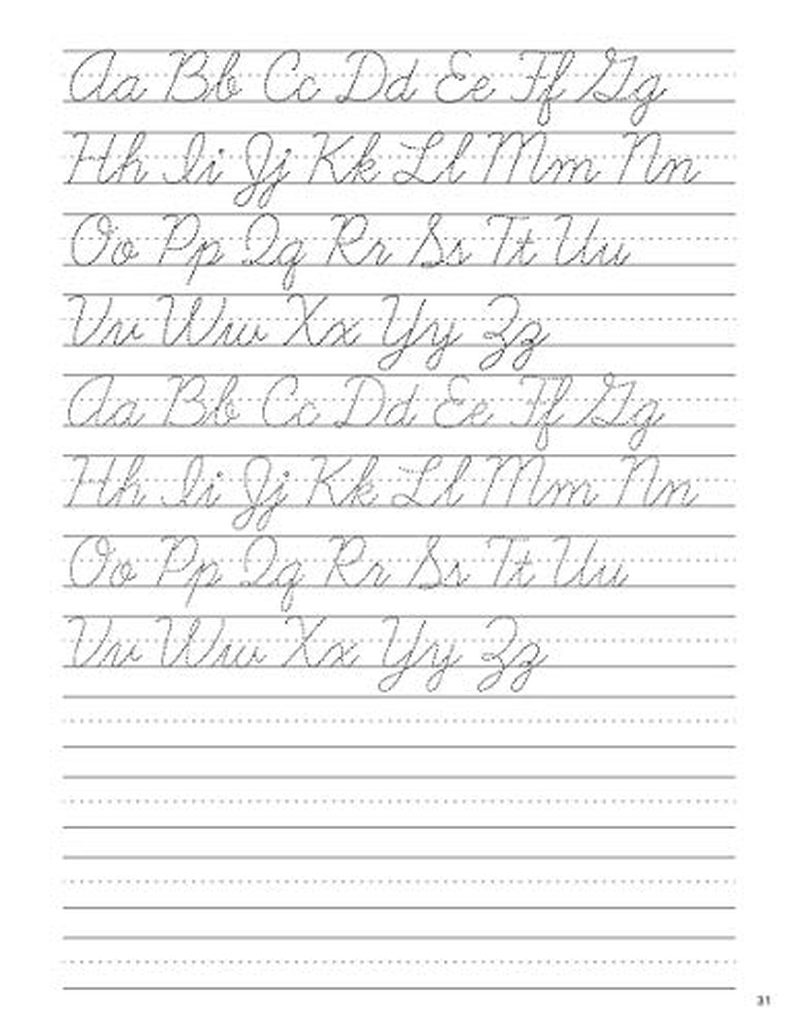 Aa Bb Cc Dd Ee Ff Gg
Hh Ii Jj Kk Ll Mm Nn
Oo Pp Qq Rr Ss Tt Uu
Vv Ww Xx Yy Zz
Aa Bb Cc Dd Ee Ff Gg
Hh Ii Jj Kk Ll Mm Nn
Oo Pp Qq Rr Ss Tt Uu
Vv Ww Xx Yy Zz
31